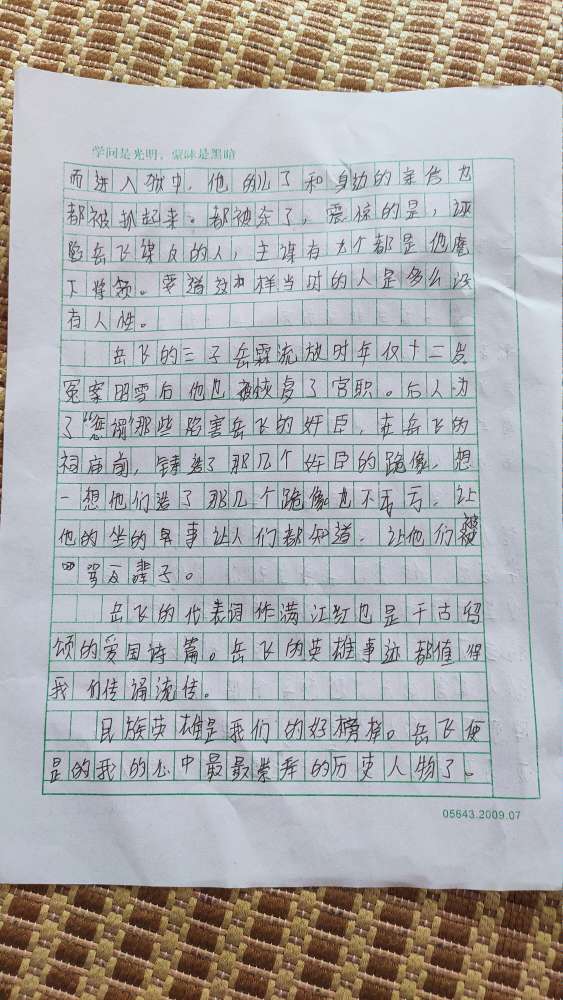 学问是光明，蒙昧是黑暗
而进入狱中，他的儿子和身边的亲信也
都被抓起来。都被杀了，震惊的是，诬
陷岳飞谋反的人，主谋有九个都是他麾
下将领。要猎这样当时的人是多么没
有人性。
岳飞的三子岳霖流放时年仅十二岁
冤案昭雪后他也被恢复了官职。后人为
了“惩罚”那些陷害岳飞的奸臣，在岳飞的
祠庙前，铸造了那几个奸臣的跪像，想
一想他们造了那几个跪像也不丢亏，让
他的坐的臭事让人们都知道，让他们被
四骂五辈子。
岳飞的代表词作满江红也是千古留
颂的爱国诗篇。岳飞的英雄事迹都值得
我们传诵流传。
民族英雄是我们的好榜样。岳飞便
是的我的心中最最崇拜的历史人物了。
05643.2009.07